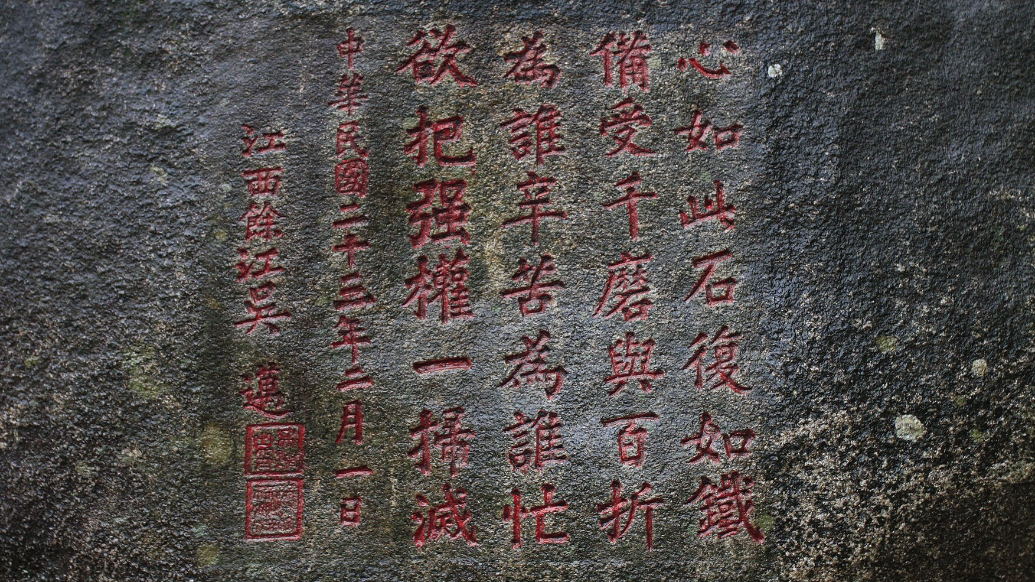 心如此石復如鐵
備受千磨與百折
為誰辛苦為誰忙
欲把强權一掃滅
中華民國二十三年二月一日
江西餘江吳邁